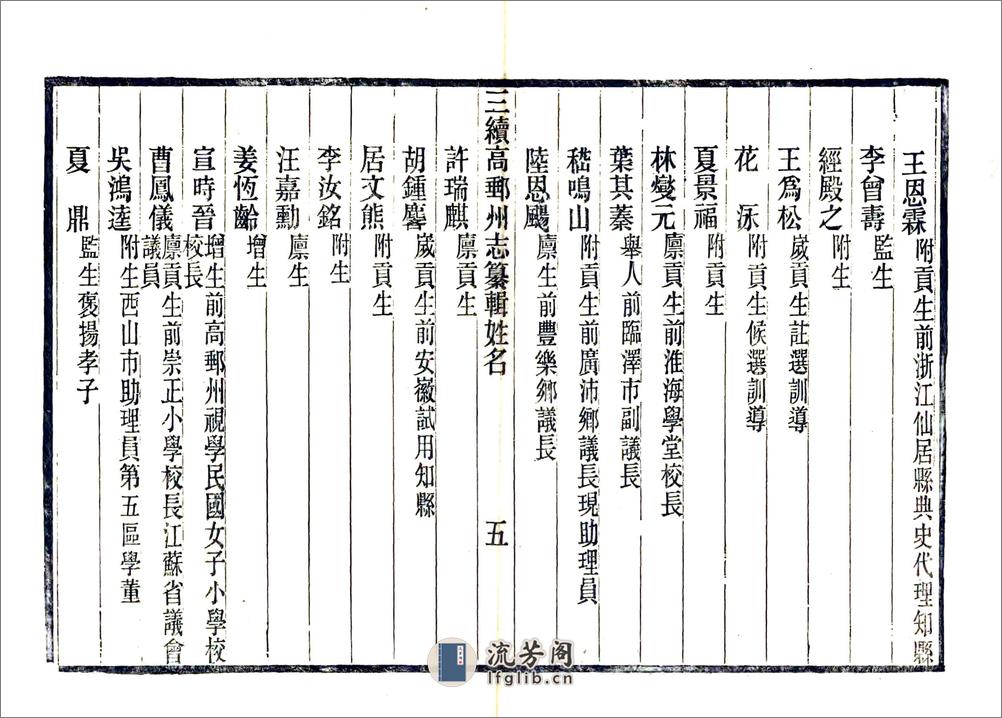 王恩霖 附貢生前浙江仙居縣典史代理知縣
李曾壽 監生
經殿之 附生
王爲松 歲貢生註選訓導
花泳 附貢生候選訓導
夏景福 附貢生
林燮元 廪貢生前淮海學堂校長
葉其蓁 舉人前臨澤市副議長
嵇鳴山 附貢生前廣沛鄉議長現助理員
陸恩颺 廪生前豐樂鄉議長
三續高郵州志纂輯姓名 五
許瑞麒 廪貢生
胡鍾麐 歲貢生前安徽試用知縣
居文熊 附貢生
李汝銘 附生
汪嘉勳 廪生
姜恆齡 增生
宣時晉 增生前高郵州視學民國女子小學校校長
曹鳳儀 廪貢生前崇正小學校長江蘇省議會議員
吳鴻逵 附生西山市助理員第五區學董
夏鼎 監生褒揚孝子
流芳阁
lfglib.cn